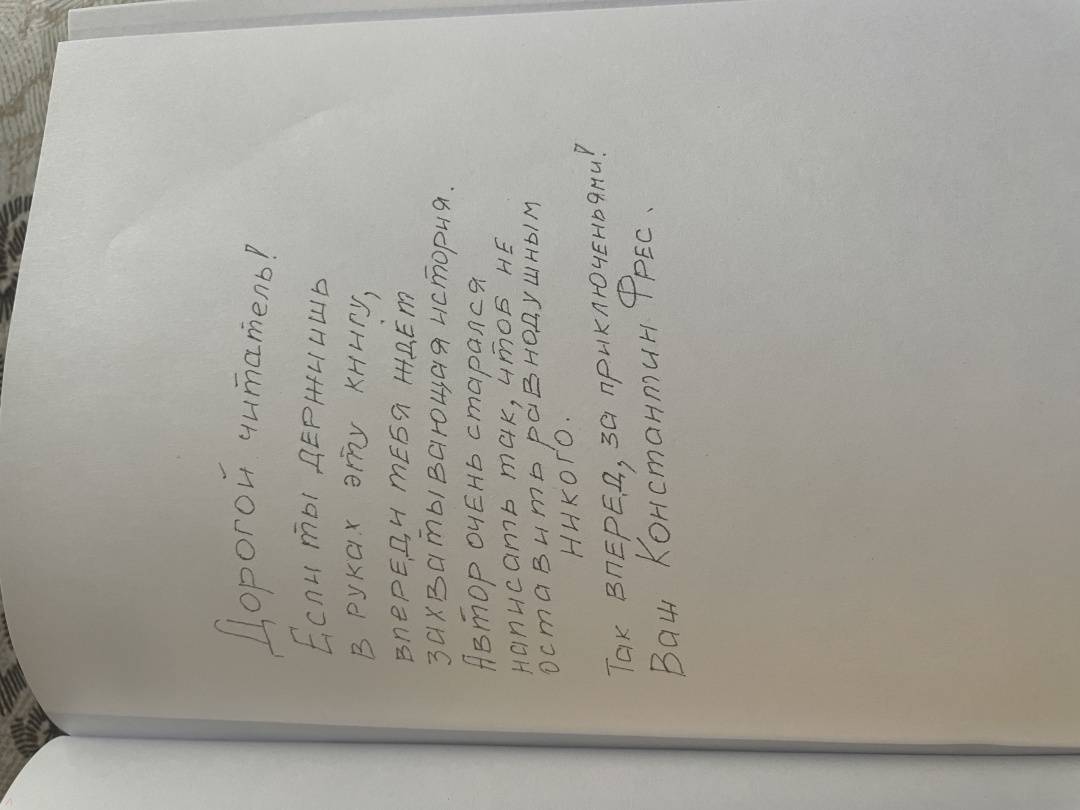 Дорогой читатель!
Если ты держишь
в руках эту книгу,
впереди тебя ждёт
захватывающая история.
Автор очень старался
написать так, чтоб не
оставить равнодушным
никого.
Так вперед, за приключеньями!
Ваш Константин Фрес.